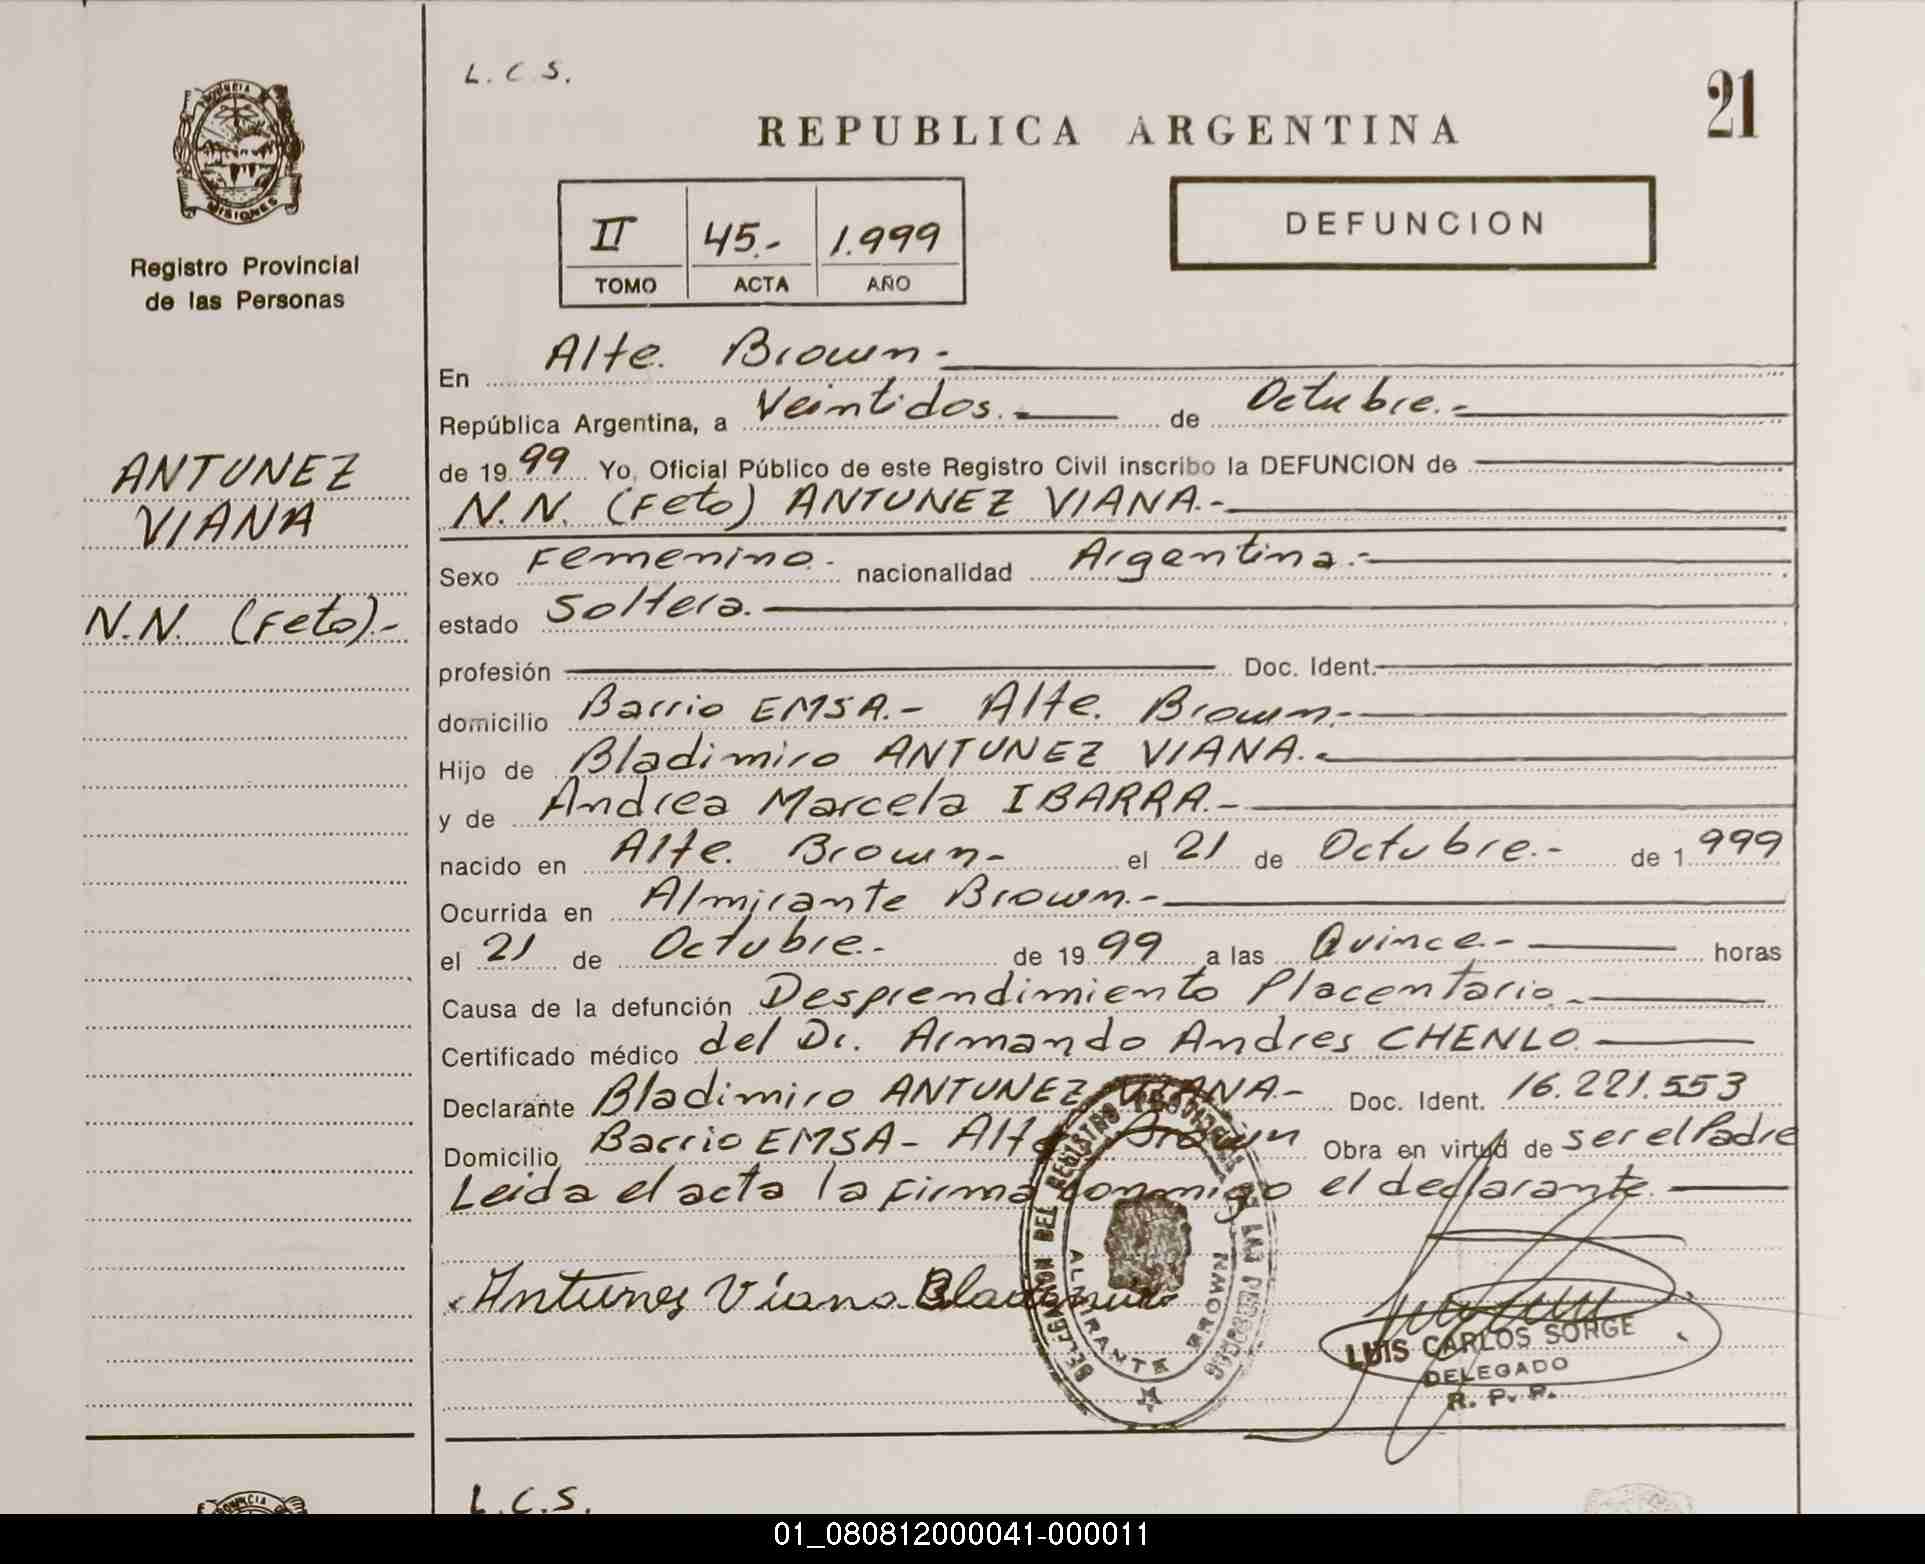 L. C. S.
21
REPUBLICA ARGENTINA
PROVINCIA DE
MISIONES
Registro Provincial
de las Personas
II 45.- 1.999
TOMO ACTA AÑO
DEFUNCION
ANTUNEZ
VIANA
N.N. (Feto).-
En Alte. Brown.-
República Argentina, a Veintidos.- de Octubre.-
de 1999 Yo, Oficial Público de este Registro Civil inscribo la DEFUNCION de
N.N. (Feto) ANTUNEZ VIANA.-
Sexo Femenino.- nacionalidad Argentina.-
estado Soltera.-
profesión Doc. Ident.
domicilio Barrio EMSA.- Alte. Brown.-
Hijo de Bladimiro ANTUNEZ VIANA.-
y de Andrea Marcela IBARRA.-
nacido en Alte. Brown.- el 21 de Octubre.- de 1999
Ocurrida en Almirante Brown.-
el 21 de Octubre.- de 1999 a las Quince.- horas
Causa de la defunción Desprendimiento Placentario.-
Certificado médico del Dr. Armando Andres CHENLO.
Declarante Bladimiro ANTUNEZ VIANA.- Doc. Ident. 16.221.553
Domicilio Barrio EMSA- Alte. Brown Obra en virtud de ser el Padre
Leida el acta la firma conmigo el declarante.
Antunez Viana Bladimiro
ALMIRANTE BROWN
LUIS CARLOS SORGE
DELEGADO
R. P. P.
L.C.S.
01_080812000041-000011